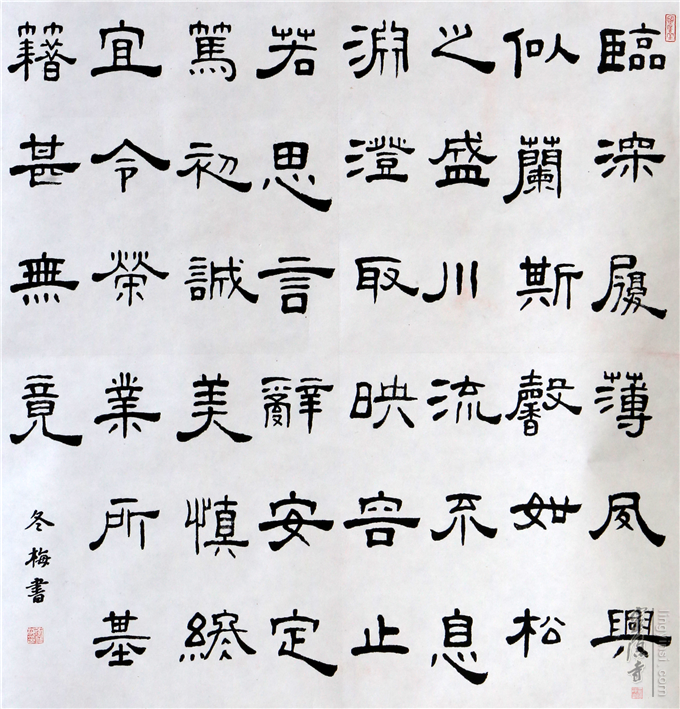 臨深履薄夙興
似蘭斯馨如松
之盛川流不息
淵澄取映容止
若思言辭安定
篤初誠美慎終
宜令榮業所基
籍甚無竟
冬梅書